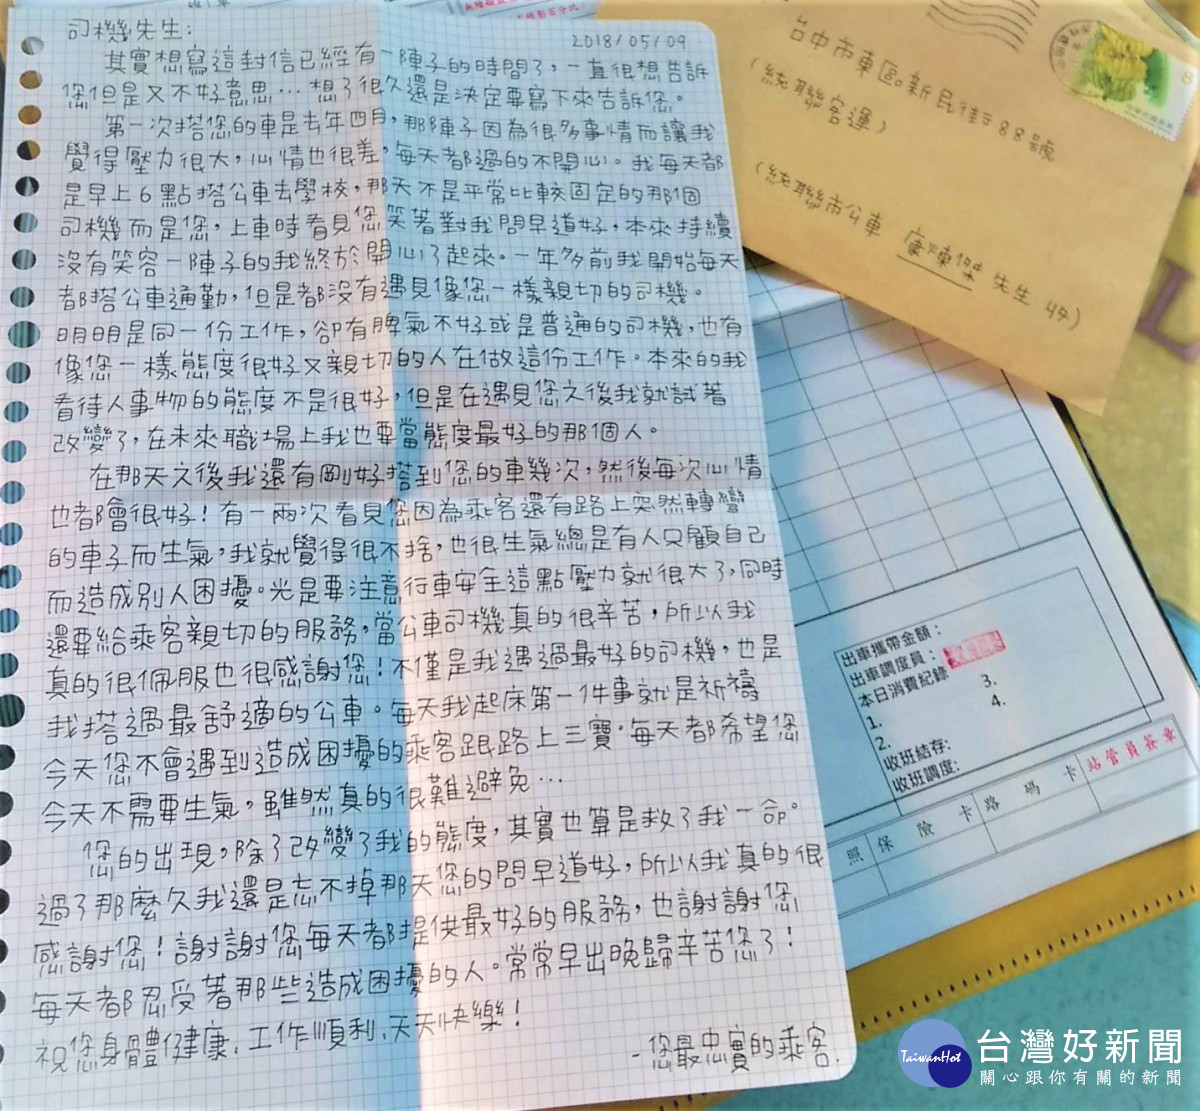 司機先生：
2018/05/09
其實想寫這封信已經有一陣子的時間了，一直很想告訴
您但是又不好意思…想了很久還是決定要寫下來告訴您。
第一次搭您的車是去年四月，那陣子因為很多事情而讓我
覺得壓力很大，心情也很差，每天都過的不開心。我每天都
是早上6點搭公車去學校，那天不是平常比較固定的那個
司機而是您，上車時看見您笑著對我問早道好，本來持續
沒有笑容一陣子的我終於開心了起來。一年多前我開始每天
都搭公車通勤，但是都沒有遇見像您一樣親切的司機。
明明是同一份工作，卻有脾氣不好或是普通的司機，也有
像您一樣態度很好又親切的人在做這份工作。本來的我
看待人事物的態度不是很好，但是在遇見您之後我就試著
改變了，在未來職場上我也要當態度最好的那個人。
在那天之後我還有剛好搭到您的車幾次，然後每次心情
也都會很好！有一兩次看見您因為乘客還有路上突然轉彎
的車子而生氣，我就覺得很不捨，也很生氣總是有人只顧自己
而造成別人困擾。光是要注意行車安全這點壓力就很大了，同時
還要給乘客親切的服務，當公車司機真的很辛苦，所以我
真的很佩服也很感謝您！不僅是我遇過最好的司機，也是
我搭過最舒適的公車。每天我起床第一件事就是祈禱
今天您不會遇到造成困擾的乘客跟路上三寶。每天都希望您
今天不需要生氣，雖然真的很難避免…
您的出現，除了改變了我的態度，其實也算是救了我一命。
過了那麼久我還是忘不掉那天您的問早道好，所以我真的很
感謝您！謝謝您每天都提供最好的服務，也謝謝您
每天都忍受著那些造成困擾的人。常常早出晚歸辛苦您了！
祝您身體健康、工作順利、天天快樂！
-您最忠實的乘客.
台中市東區新民街88號
(統聯客運)
(統聯市公車 康棟傑 先生 收)
8
出車攜帶金額：
出車調度員：
本日消費紀錄
1.
2.
3.
4.
收班結存：
收班調度：
照 保險卡 路碼卡 站管員簽章
TaiwanHot
台灣好新聞
關心跟你有關的新聞